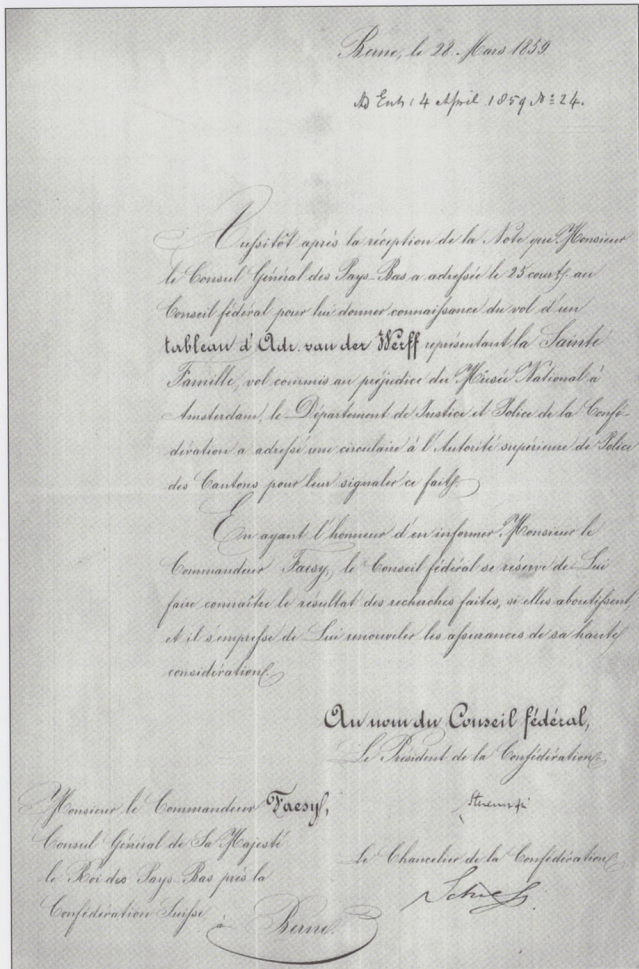 Berne, le 28. Mars 1859
Ent: 4 April 1859 Nº 24.
Aussitôt après la réception de la Note que Monsieur
le Consul Général des Pays-Bas a adressée le 25 court. au
Conseil fédéral pour lui donner connaissance du vol d'un
tableau d'Adr. van der Werff représentant la Sainte
Famille, vol commis au préjudice du Musée National à
Amsterdam, le Département de Justice et Police de la Confé-
dération a adressé une circulaire à l'Autorité supérieure de Police
des Cantons pour leur signaler ce fait.
En ayant l'honneur d'en informer Monsieur le
Commandeur Faesy, le Conseil fédéral se réserve de Lui
faire connaître le résultat des recherches faites, si elles aboutissent,
et il s'empresse de Lui renouveler les assurances de sa haute
considération.
Au nom du Conseil fédéral,
Le Président de la Confédération
Monsieur le Commandeur Faesy,
Consul Général de Sa Majesté
le Roi des Pays-Bas près la
Confédération Suisse
à Berne.
Le Chancelier de la Confédération
Schiess